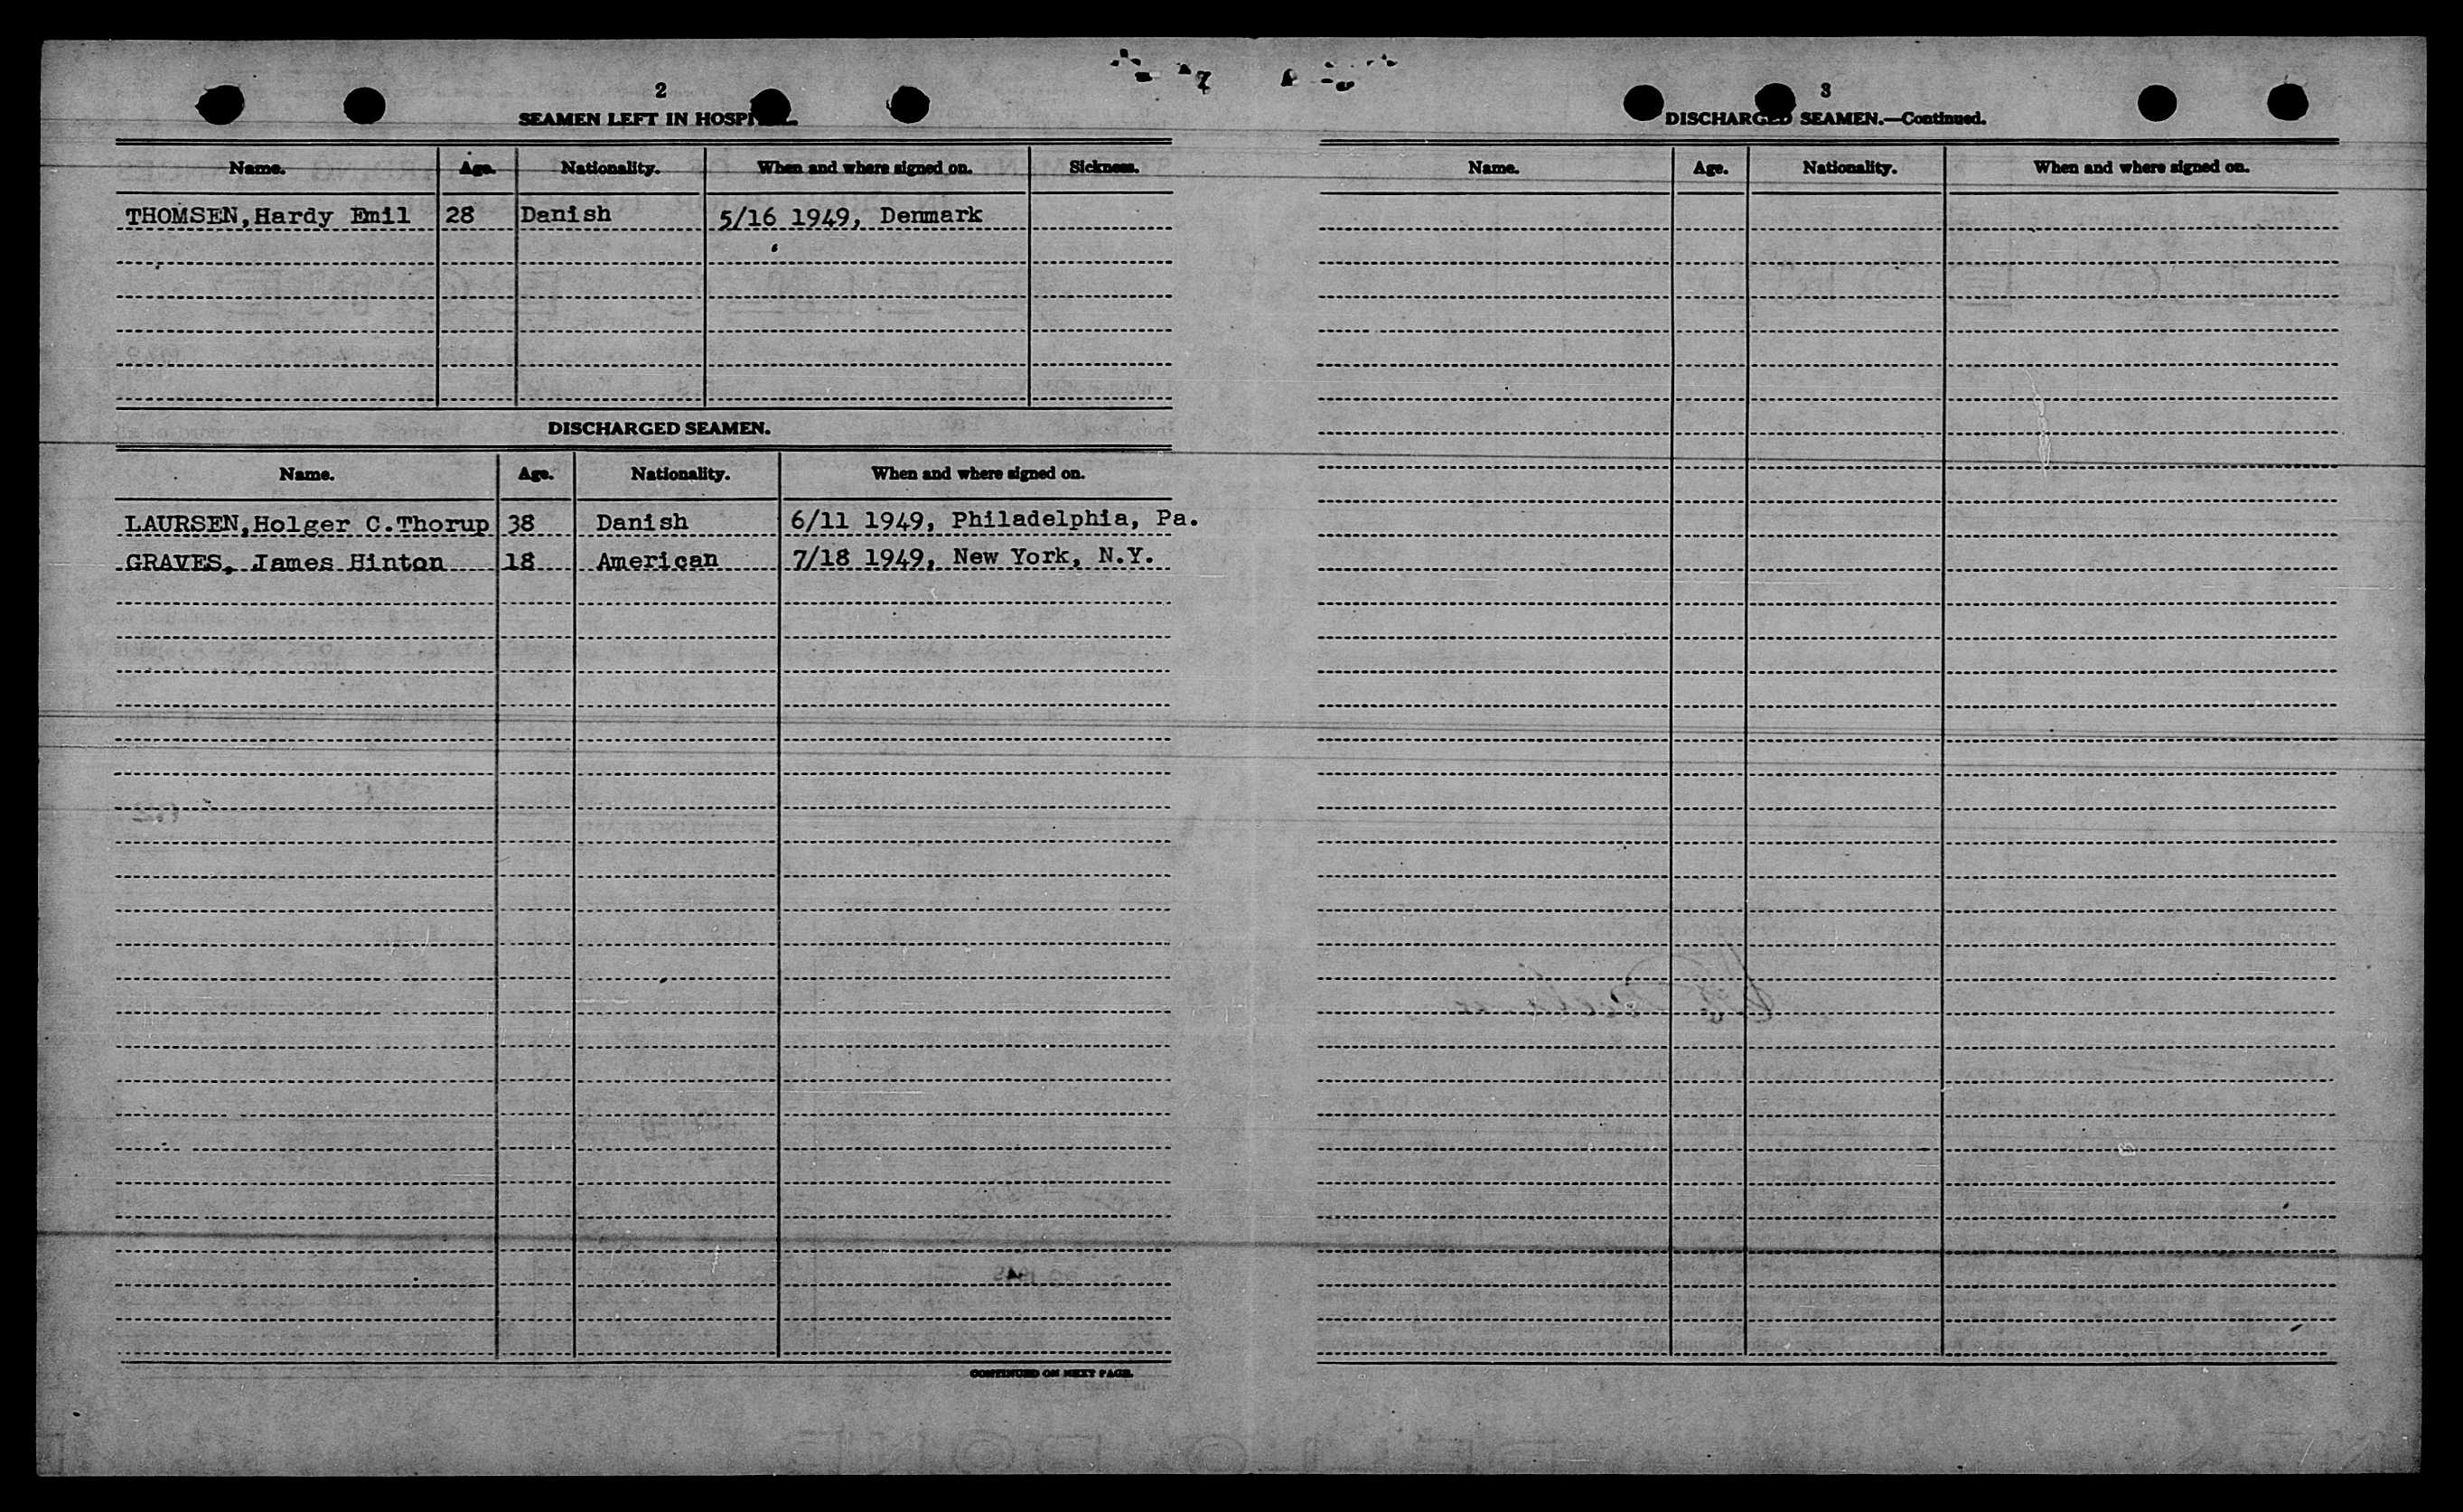 2
SEAMEN LEFT IN HOSPITAL.
Name. Age. Nationality. When and where signed on. Sickness.
THOMSEN,Hardy Emil 28 Danish 5/16 1949, Denmark
DISCHARGED SEAMEN.
Name. Age. Nationality. When and where signed on.
LAURSEN,Holger C.Thorup 38 Danish 6/11 1949, Philadelphia, Pa.
GRAVES, James Hinton 18 American 7/18 1949, New York, N.Y.
CONTINUED ON NEXT PAGE.
3
DISCHARGED SEAMEN.—Continued.
Name. Age. Nationality. When and where signed on.